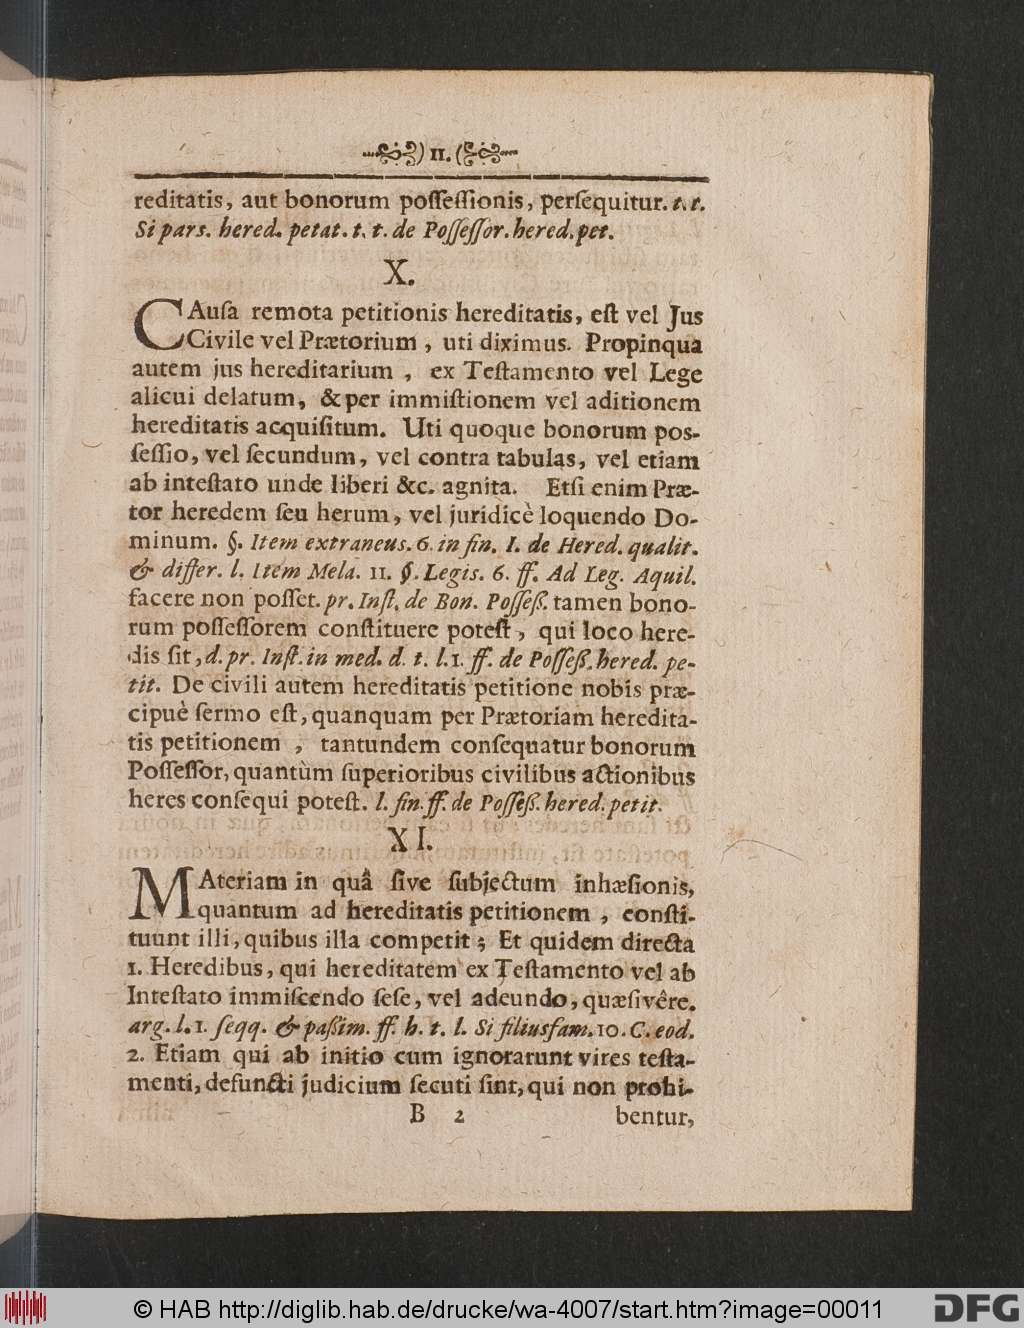 ) 11. (
reditatis, aut bonorum poſſeſſionis, perſequitur. t. t.
Si pars. hered. petat. t. t. de Poſſeſſor. hered. pet.
X.
CAuſa remota petitionis hereditatis, eſt vel Jus
Civile vel Prætorium, uti diximus. Propinqua
autem jus hereditarium, ex Teſtamento vel Lege
alicui delatum, & per immiſtionem vel aditionem
hereditatis acquiſitum. Uti quoque bonorum poſ-
ſeſſio, vel ſecundum, vel contra tabulas, vel etiam
ab inteſtato unde liberi &c. agnita. Etſi enim Præ-
tor heredem ſeu herum, vel juridicè loquendo Do-
minum. §. Item extraneus. 6. in fin. I. de Hered. qualit.
& differ. l. Item Mela. 11. §. Legis. 6. ff. Ad Leg. Aquil.
facere non poſſet. pr. Inſt. de Bon. Poſſeß. tamen bono-
rum poſſeſſorem conſtituere poteſt, qui loco here-
dis ſit, d. pr. Inſt. in med. d. t. l. 1. ff. de Poſſeß. hered. pe-
tit. De civili autem hereditatis petitione nobis præ-
cipuè ſermo eſt, quanquam per Prætoriam heredita-
tis petitionem, tantundem conſequatur bonorum
Poſſeſſor, quantùm ſuperioribus civilibus actionibus
heres conſequi poteſt. l. fin. ff. de Poſſeß. hered. petit.
XI.
MAteriam in quâ ſive ſubjectum inhæſionis,
quantum ad hereditatis petitionem, conſti-
tuunt illi, quibus illa competit; Et quidem directa
1. Heredibus, qui hereditatem ex Teſtamento vel ab
Inteſtato immiſcendo ſeſe, vel adeundo, quæſivêre.
arg. l. 1. ſeqq. & paßim. ff. h. t. l. Si filiusfam. 10. C. eod.
2. Etiam qui ab initio cum ignorarunt vires teſta-
menti, defuncti judicium ſecuti ſint, qui non prohi-
B 2 bentur,
© HAB http://diglib.hab.de/drucke/wa-4007/start.htm?image=00011
DFG